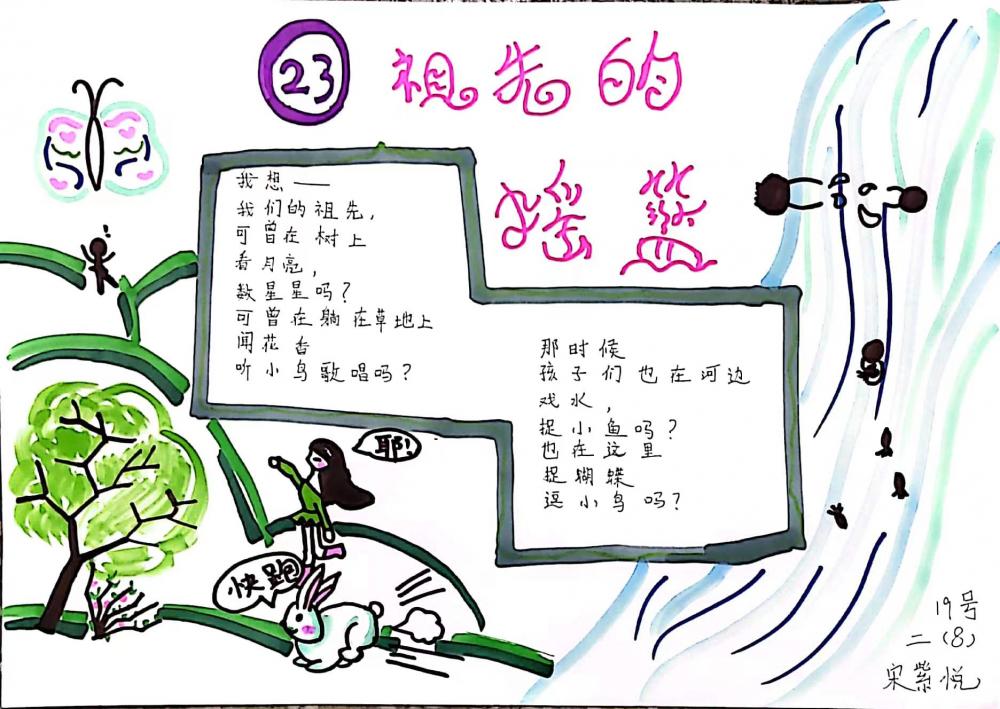 23 祖先的
摇篮
我想——
我们的祖先，
可曾在树上
看月亮，
数星星吗？
可曾在躺在草地上
闻花香
听小鸟歌唱吗？
那时候
孩子们也在河边
戏水，
捉小鱼吗？
也在这里
捉蝴蝶
逗小鸟吗？
耶！
快跑
19号
二（8）
宋紫悦